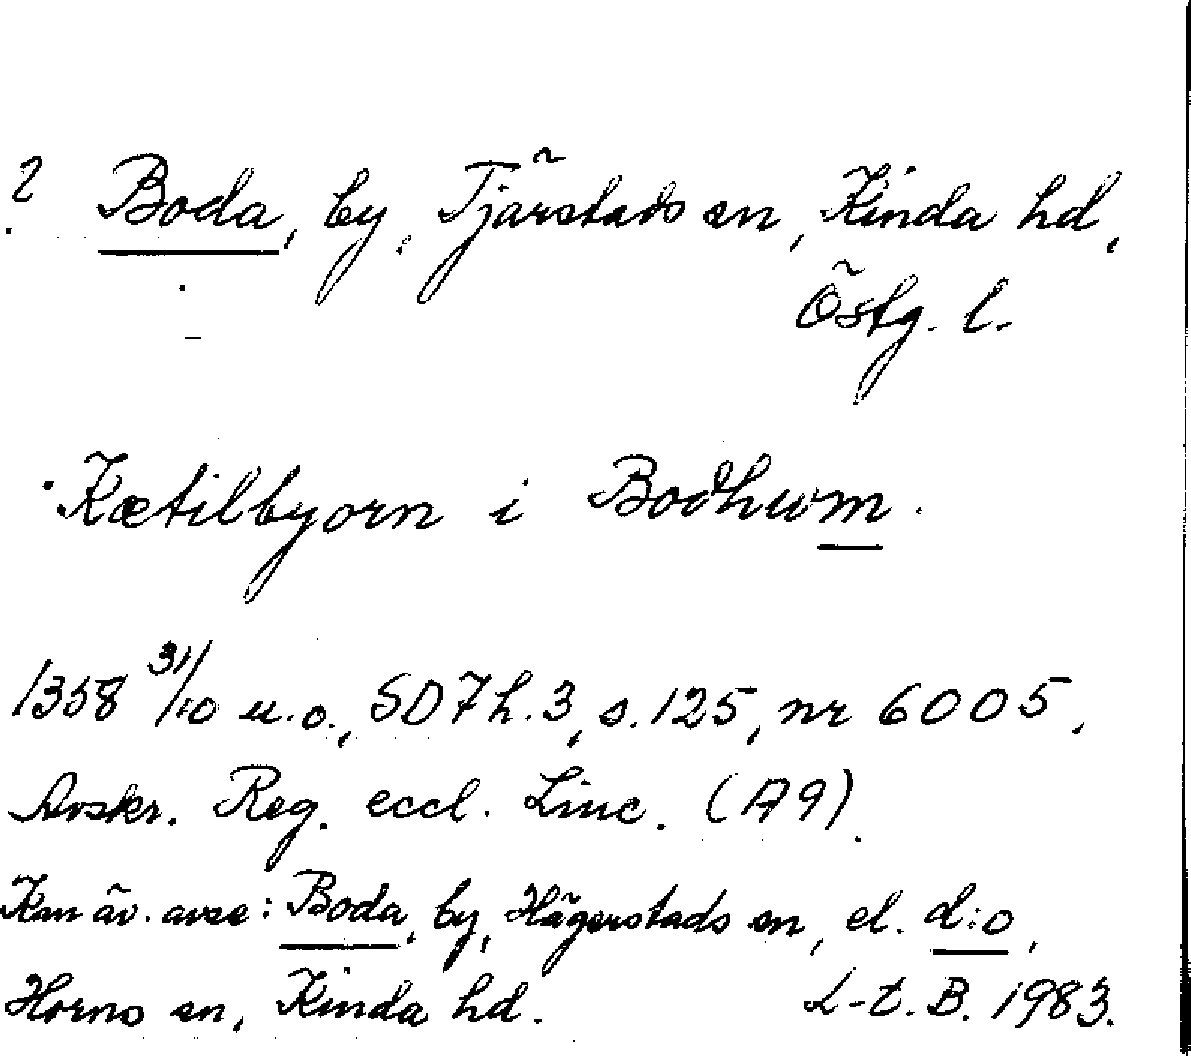 ? Boda, by, Tjärstads sn, Kinda hd,
Östg. l.
Kætilbyorn i Bodhum.
1358 31/10 u.o., SD 7 h. 3, s. 125, nr 6005,
Avskr. Reg. eccl. Linc. (A9).
Kan äv. avse: Boda, by, Hägerstads sn, el. d:o,
Horns sn, Kinda hd. L-t. B. 1983.